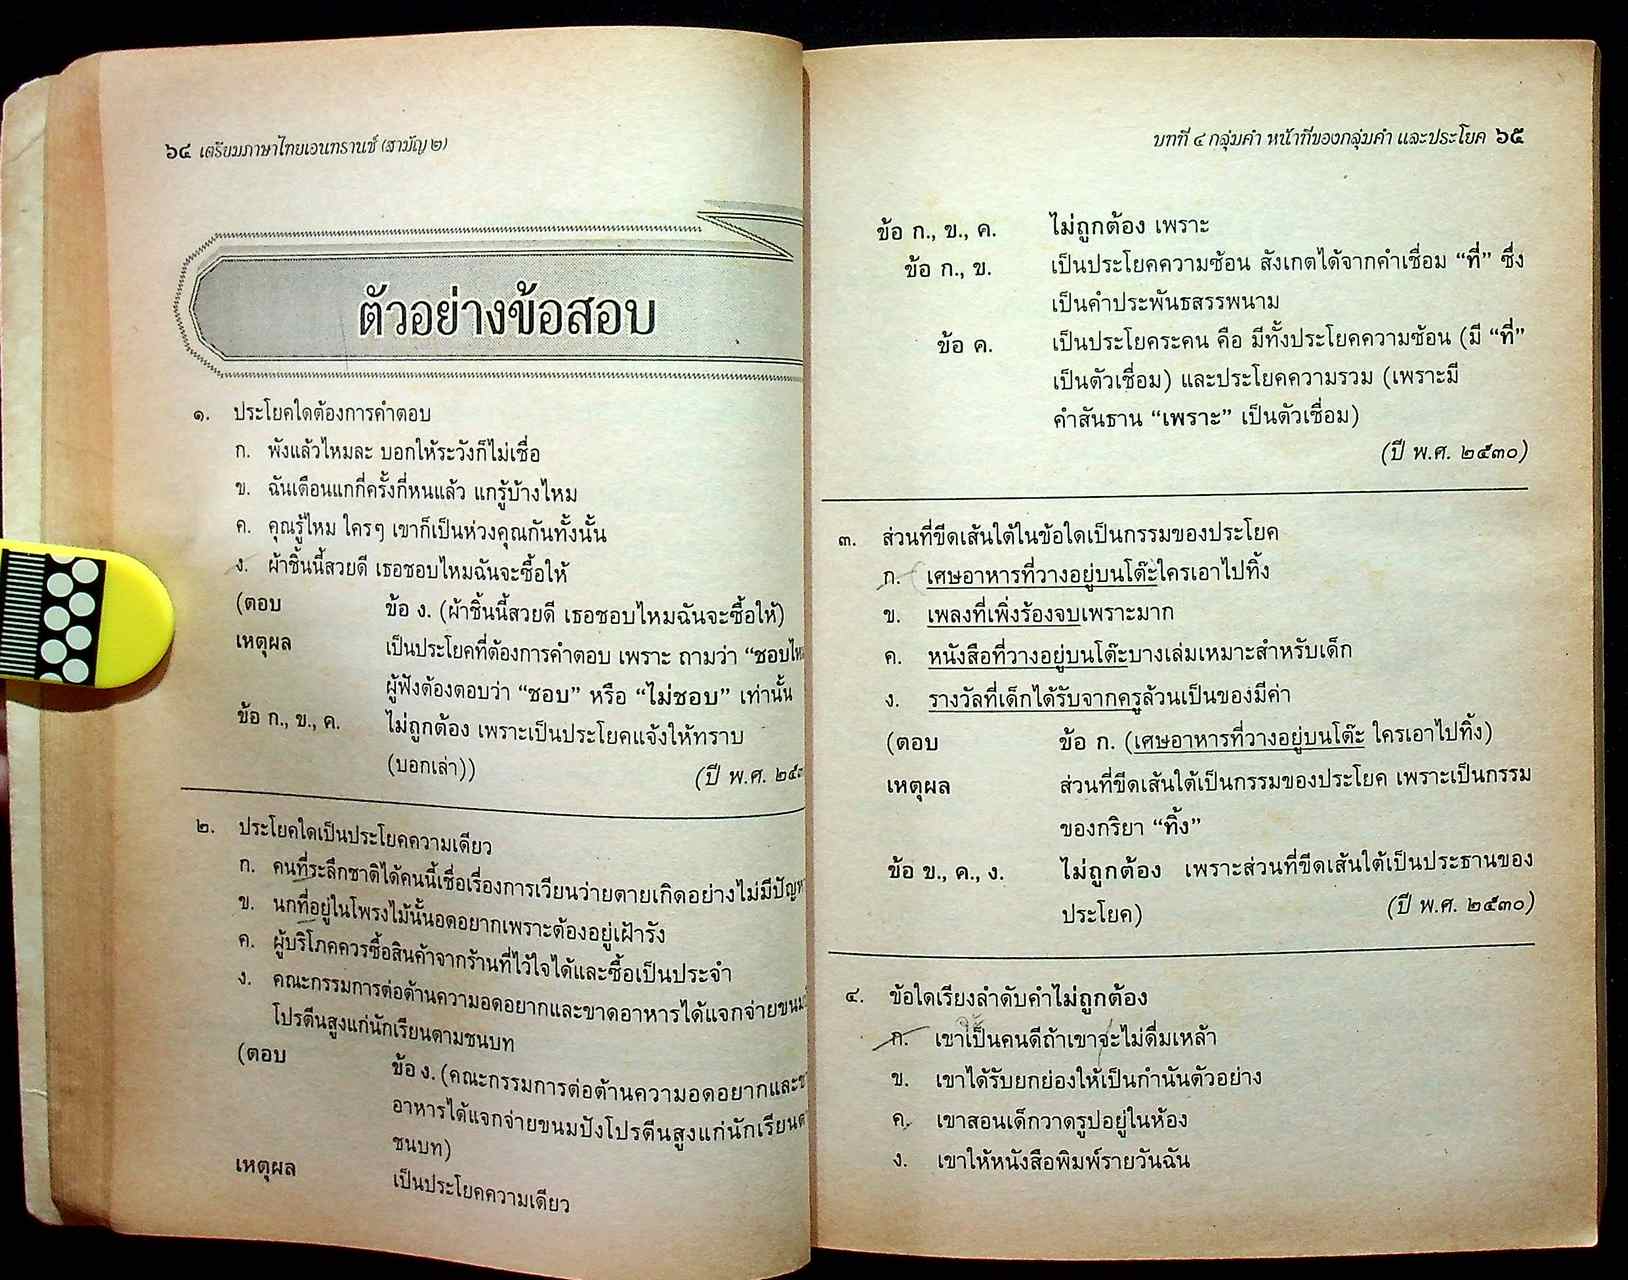 ๖๔ เตรียมภาษาไทยเอนทรานซ์ (สามัญ ๒)
ตัวอย่างข้อสอบ
๑. ประโยคใดต้องการคำตอบ
ก. พังแล้วไหมละ บอกให้ระวังก็ไม่เชื่อ
ข. ฉันเตือนแกกี่ครั้งกี่หนแล้ว แกรู้บ้างไหม
ค. คุณรู้ไหม ใครๆ เขาก็เป็นห่วงคุณกันทั้งนั้น
ง. ผ้าชิ้นนี้สวยดี เธอชอบไหมฉันจะซื้อให้
(ตอบ ข้อ ง. (ผ้าชิ้นนี้สวยดี เธอชอบไหมฉันจะซื้อให้)
เหตุผล เป็นประโยคที่ต้องการคำตอบ เพราะ ถามว่า “ชอบ
ผู้ฟังต้องตอบว่า “ชอบ” หรือ “ไม่ชอบ” เท่านั้น
ข้อ ก., ข., ค. ไม่ถูกต้อง เพราะเป็นประโยคแจ้งให้ทราบ
(บอกเล่า)) (ปี พ.ศ.
๒. ประโยคใดเป็นประโยคความเดียว
ก. คนที่ระลึกชาติได้คนนี้เชื่อเรื่องการเวียนว่ายตายเกิดอย่างไม่มี
ข. นกที่อยู่ในโพรงไม้นั้นอดอยากเพราะต้องอยู่เฝ้ารัง
ค. ผู้บริโภคควรซื้อสินค้าจากร้านที่ไว้ใจได้และซื้อเป็นประจำ
ง. คณะกรรมการต่อต้านความอดอยากและขาดอาหารได้แจกจ่ายขนม
โปรตีนสูงแก่นักเรียนตามชนบท
(ตอบ ข้อ ง. (คณะกรรมการต่อต้านความอดอยากและ
อาหารได้แจกจ่ายขนมปังโปรตีนสูงแก่นักเรียน
ชนบท)
เหตุผล เป็นประโยคความเดียว
บทที่ ๔ กลุ่มคำ หน้าที่ของกลุ่มคำ และประโยค ๖๕
ข้อ ก., ข., ค. ไม่ถูกต้อง เพราะ
ข้อ ก., ข. เป็นประโยคความซ้อน สังเกตได้จากคำเชื่อม “ที่” ซึ่ง
เป็นคำประพันธสรรพนาม
ข้อ ค. เป็นประโยคระคน คือ มีทั้งประโยคความซ้อน (มี “ที่”
เป็นตัวเชื่อม) และประโยคความรวม (เพราะมี
คำสันธาน “เพราะ” เป็นตัวเชื่อม)
(ปี พ.ศ. ๒๕๓๐)
๓. ส่วนที่ขีดเส้นใต้ในข้อใดเป็นกรรมของประโยค
ก. เศษอาหารที่วางอยู่บนโต๊ะใครเอาไปทิ้ง
ข. เพลงที่เพิ่งร้องจบเพราะมาก
ค. หนังสือที่วางอยู่บนโต๊ะบางเล่มเหมาะสำหรับเด็ก
ง. รางวัลที่เด็กได้รับจากครูล้วนเป็นของมีค่า
(ตอบ ข้อ ก. (เศษอาหารที่วางอยู่บนโต๊ะ ใครเอาไปทิ้ง)
เหตุผล ส่วนที่ขีดเส้นใต้เป็นกรรมของประโยค เพราะเป็นกรรม
ของกริยา “ทิ้ง”
ข้อ ข., ค., ง. ไม่ถูกต้อง เพราะส่วนที่ขีดเส้นใต้เป็นประธานของ
ประโยค) (ปี พ.ศ. ๒๕๓๐)
๔. ข้อใดเรียงลำดับคำไม่ถูกต้อง
ก. เขาเป็นคนดีถ้าเขาจะไม่ดื่มเหล้า
ข. เขาได้รับยกย่องให้เป็นกำนันตัวอย่าง
ค. เขาสอนเด็กวาดรูปอยู่ในห้อง
ง. เขาให้หนังสือพิมพ์รายวันฉัน